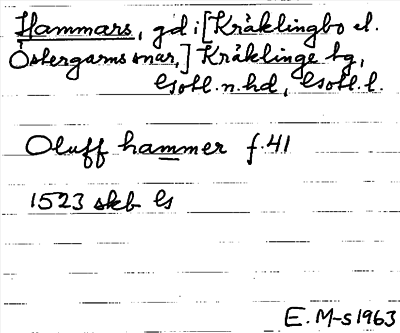 Hammars, gd i [Kräklingbo el.
Östergarns snar,] Kräklinge tg,
Gotl. n. hd, Gotl. l.
Oluff hammer f. 41
1523 skb Gs
E. M-s 1963